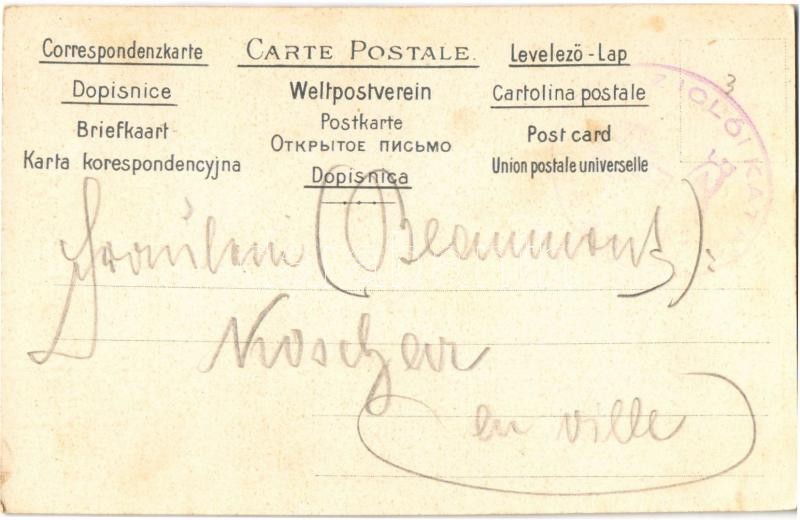 Correspondenzkarte
Dopisnice
Briefkaart
Karta korespondencyjna
CARTE POSTALE.
Weltpostverein
Postkarte
ОТКРЫТОЕ ПИСЬМО
Dopisnica
Levelező - Lap
Cartolina postale
Post card
Union postale universelle
3
Fräulein (Beaumont):
en ville